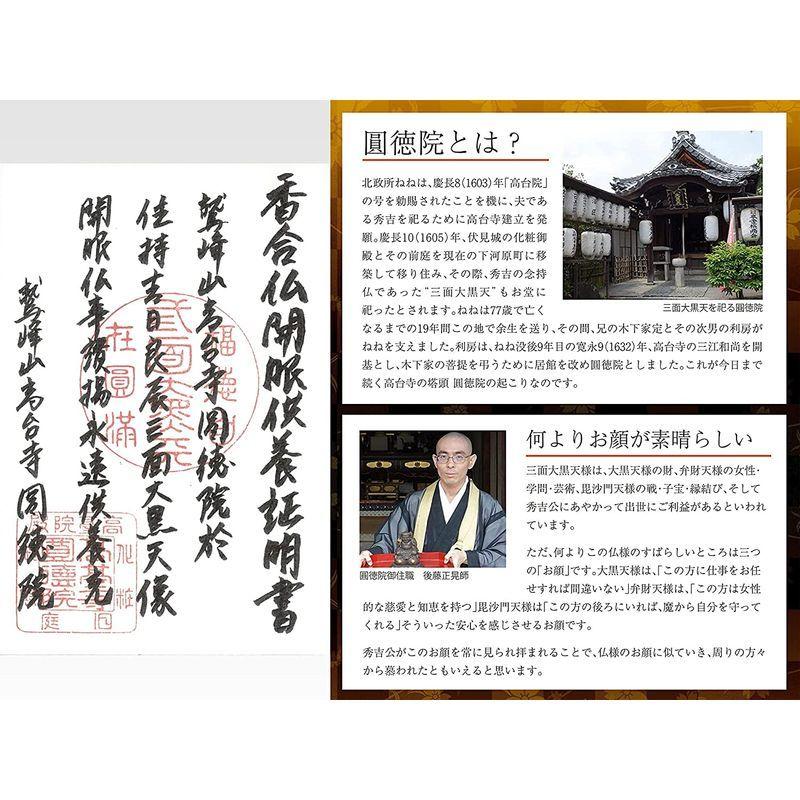 香合仏開眼供養証明書
鷲峰山高台寺圓徳院於
住持吉日良辰三面大黒天像
開眼仏事厳揚永遠供養充
鷲峰山高台寺 圓徳院
圓徳院とは？
北政所ねねは、慶長8(1603)年「高台院」
の号を勅賜されたことを機に、夫であ
る秀吉を祀るために高台寺建立を発
願。慶長10(1605)年、伏見城の化粧御
殿とその前庭を現在の下河原町に移
築して移り住み、その際、秀吉の念持
仏であった“三面大黒天”もお堂に
祀ったとされます。ねねは77歳で亡く
なるまでの19年間この地で余生を送り、その間、兄の木下家定とその次男の利房が
ねねを支えました。利房は、ねね没後9年目の寛永9(1632)年、高台寺の三江和尚を開
基とし、木下家の菩提を弔うために居館を改め圓徳院としました。これが今日まで
続く高台寺の塔頭 圓徳院の起こりなのです。
三面大黒天を祀る圓徳院
何よりお顔が素晴らしい
三面大黒天様は、大黒天様の財、弁財天様の女性・
学問・芸術、毘沙門天様の戦・子宝・縁結び、そして
秀吉公にあやかって出世にご利益があるといわれ
ています。
ただ、何よりこの仏様のすばらしいところは三つ
の「お顔」です。大黒天様は、「この方に仕事をお任
せすれば間違いない」弁財天様は、「この方は女性
的な慈愛と知恵を持つ」毘沙門天様は「この方の後ろにいれば、魔から自分を守って
くれる」そういった安心を感じさせるお顔です。
秀吉公がこのお顔を常に見られ拝まれることで、仏様のお顔に似ていき、周りの方々
から慕われたともいえると思います。
圓徳院御住職　後藤正晃師